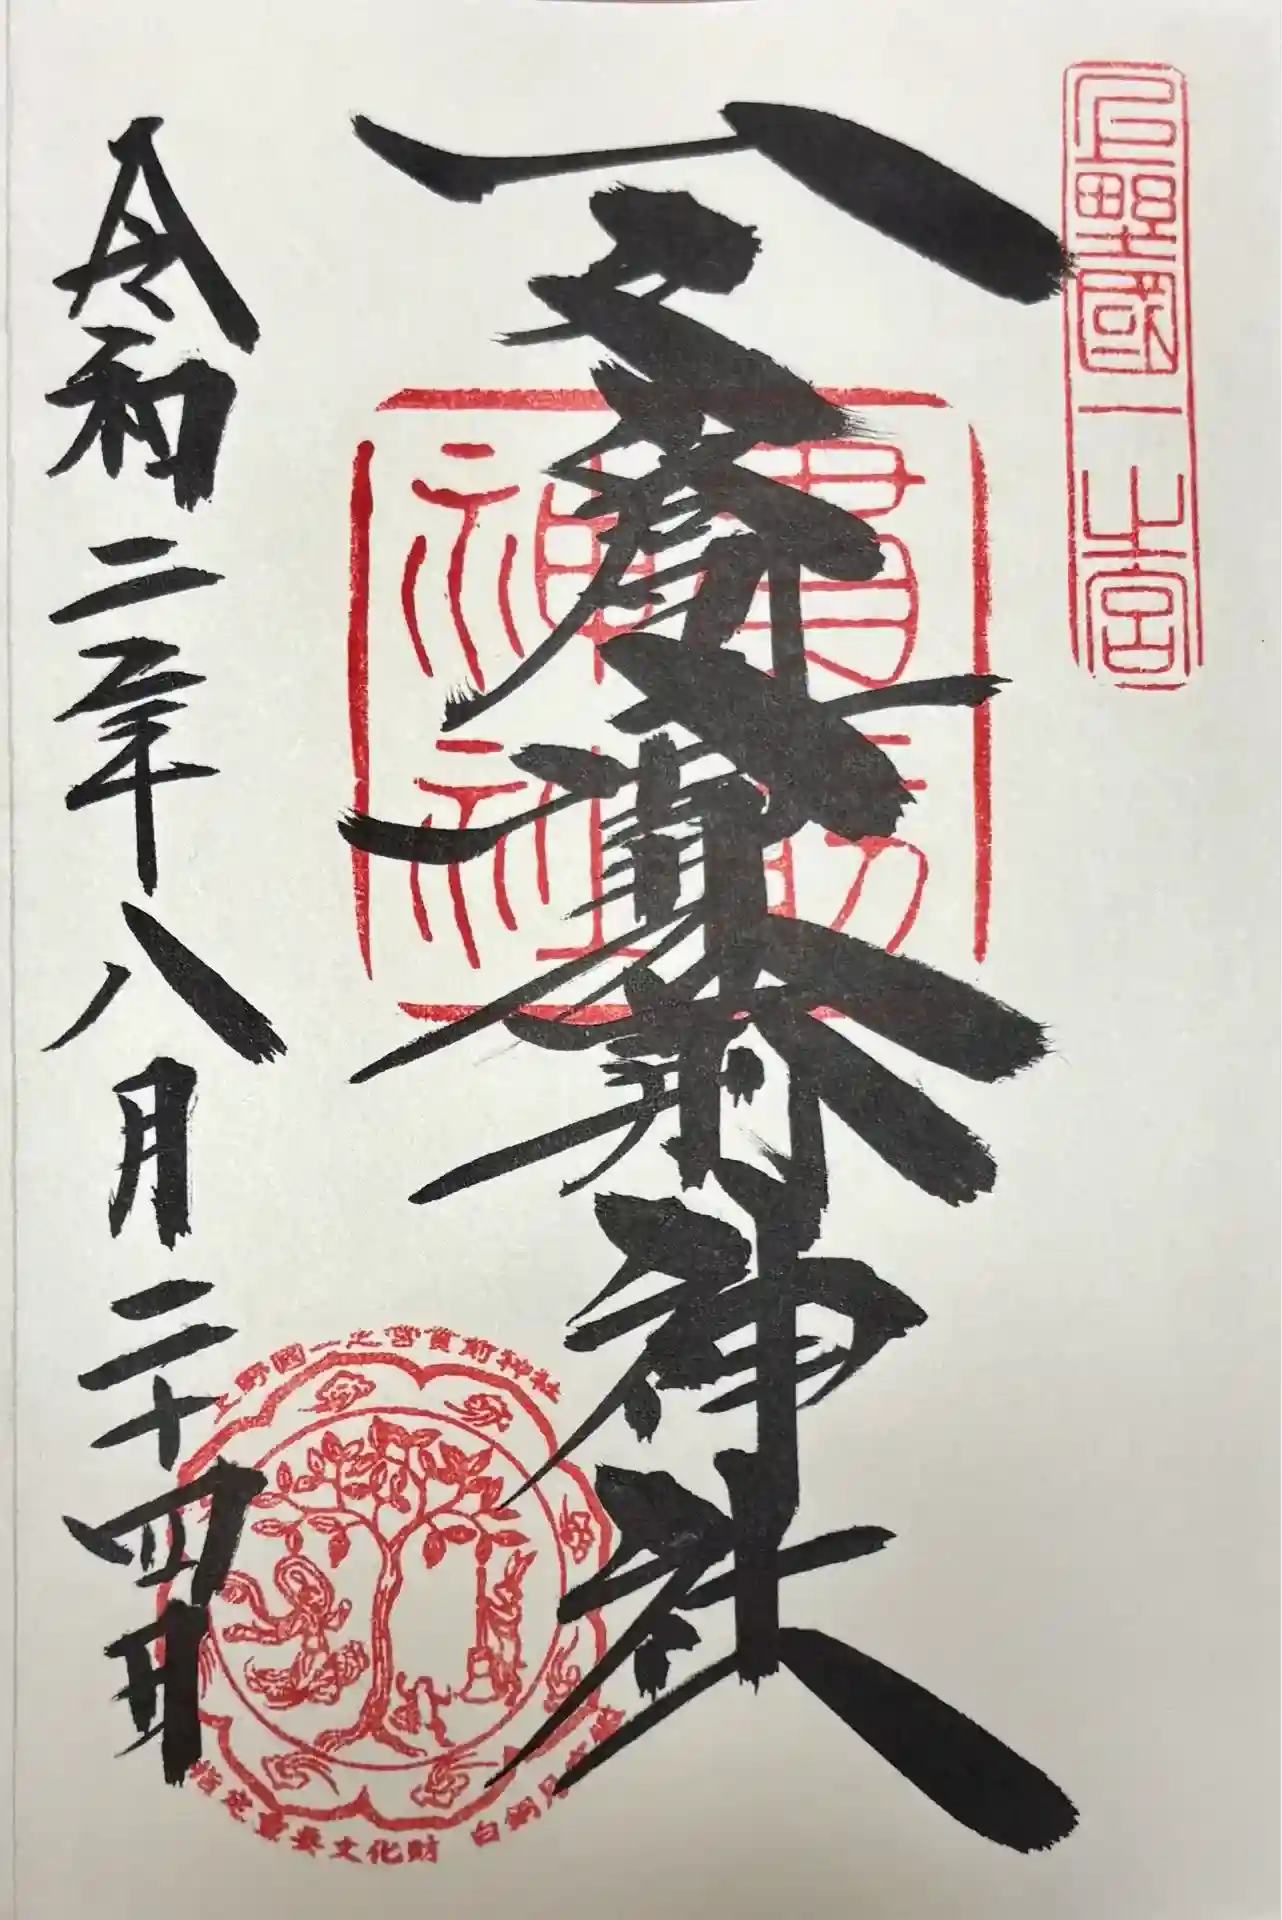 上野國一之宮
神社
貫前神社
令和二年八月二十四日
上野國一之宮貫前神社
指定重要文化財 白銅月